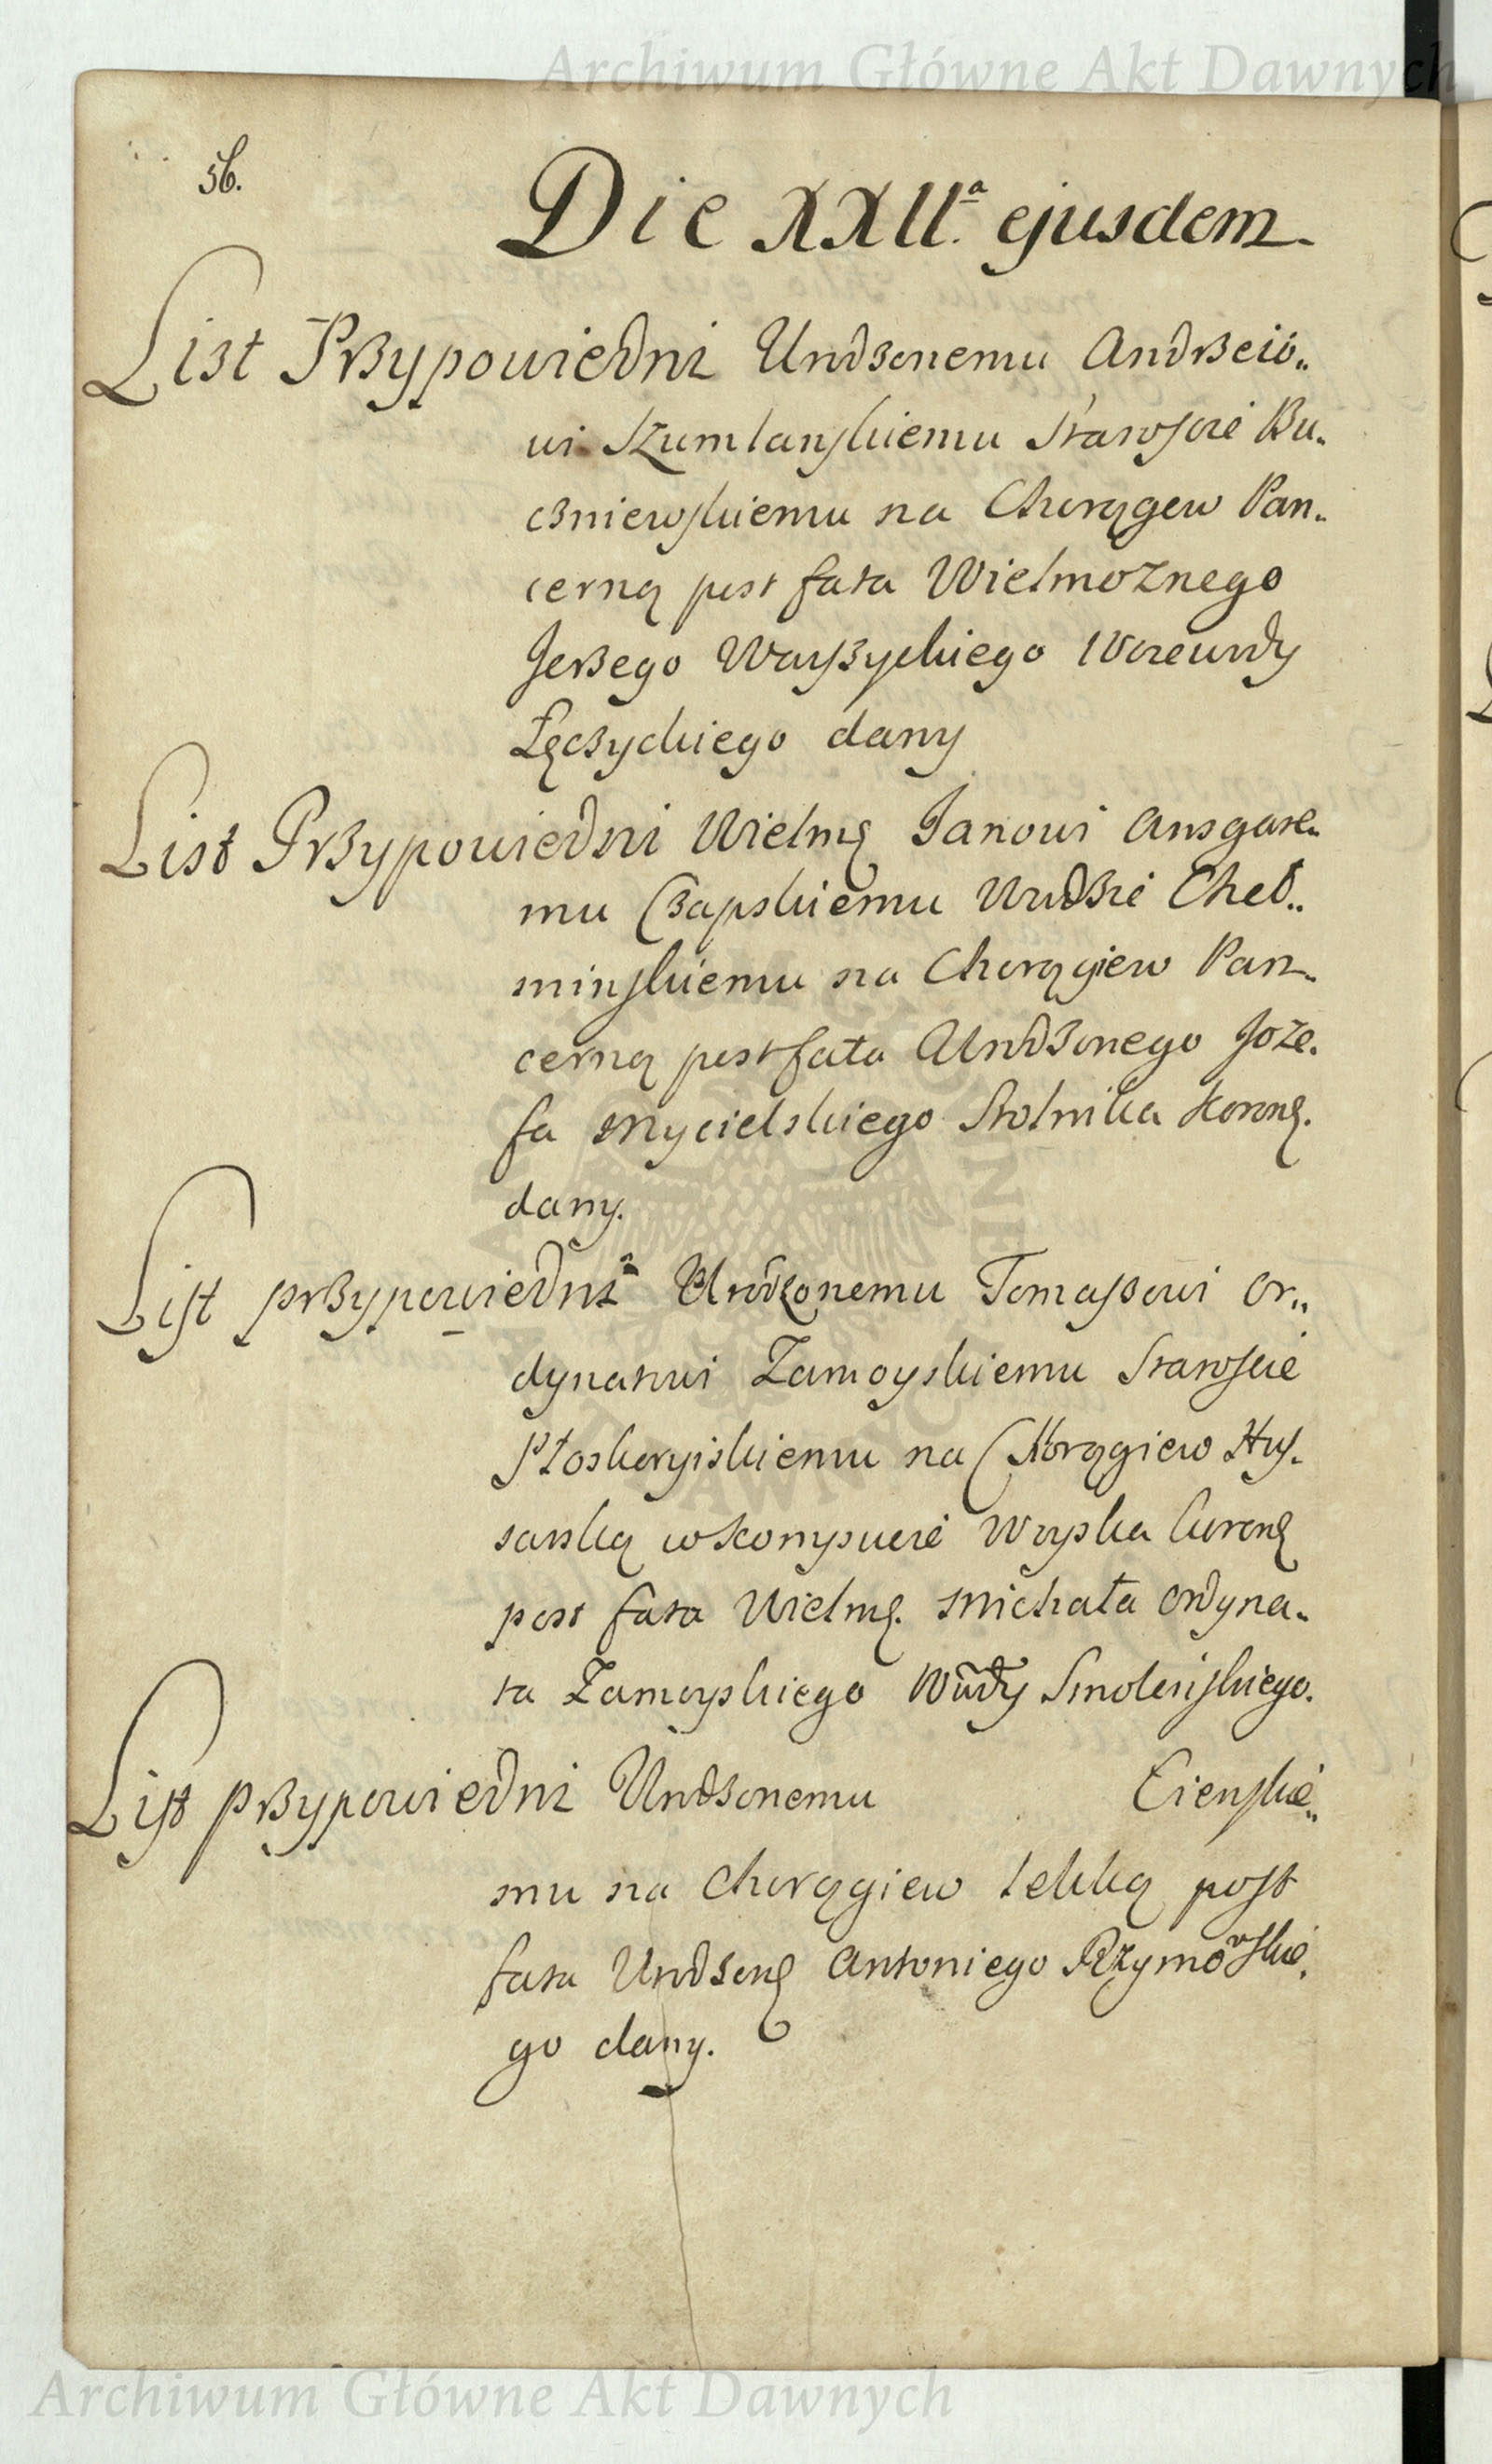 Archiwum Główne Akt Dawnych
56.
Die XXIIª ejusdem
List Przypowiedni Urodzonemu Andrzeio„
wi Szumlanskiemu Staroscie Bu„
czniewskiemu na Chorągew Pan„
cerną post fata Wielmoznego
Jerzego Warszyckiego Woiewody
Łęczyckiego dany
List Przypowiedni Wielmę Janowi Ansgare„
mu Czapskiemu Wudzie Cheł„
minskiemu na Chorągiew Pan„
cerną post fata Urodzonego Joze„
fa Mycielskiego Stolnika Koronę.
dany.
List przypowiedni Urodzonemu Tomaszowi Or„
dynatowi Zamoyskiemu Staroscie
Płoskoryiskiemu na Chorągiew Hus„
sarską w Kompucie Woyska Koronę
post fata Wielmę. Michała Ordyna„
ta Zamoyskiego Wudy Smolenskiego.
List przypowiedni Urodzonemu Cienskie„
mu na Chorągiew lekką post
fata Urodzonę Antoniego Rzymowskie„
go dany.
Archiwum Główne Akt Dawnych